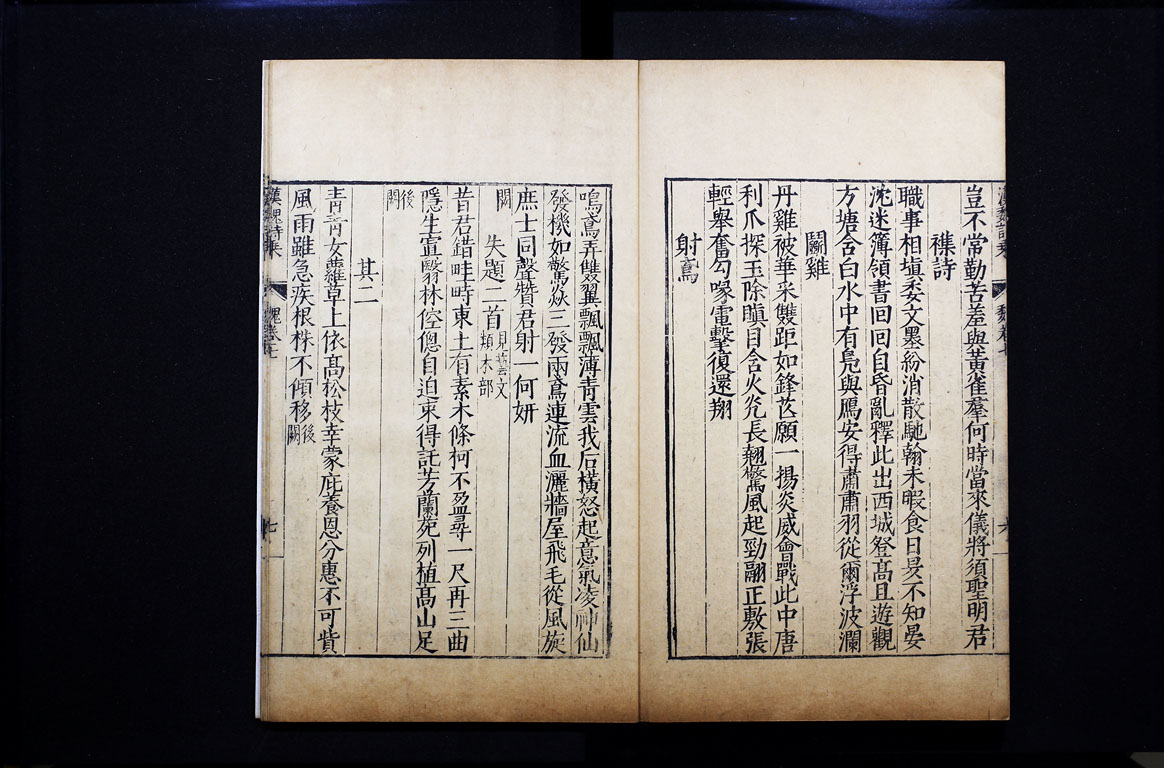 漢魏詩乘 魏卷七 六
豈不常勤苦羞與黃雀羣何時當來儀將須聖明君
襍詩
職事相塡委文墨紛消散馳翰未暇食日昃不知晏
沈迷簿領書回回自昏亂釋此出西城登髙且遊觀
方塘含白水中有鳧與鴈安得肅肅羽從爾浮波瀾
鬭雞
丹雞被華采雙距如鋒芒願一揚炎威會戰此中唐
利爪探玉除瞋目含火光長翹驚風起勁翮正敷張
輕舉奮勾喙電擊復還翔
射鳶
鳴鳶弄雙翼飄飄薄青雲我后橫怒起意氣凌神仙
發機如驚焱三發兩鳶連流血灑牆屋飛毛從風旋
庶士同聲贊君射一何姸
闕
失題二首 見藝文類木部
昔君錯畦時東土有素木條柯不盈尋一尺再三曲
隱生寘翳林倥偬自迫束得託芳蘭苑列植髙山足
後闕
其二
青青女蘿草上依髙松枝幸蒙庇養恩分惠不可貲
風雨雖急疾根株不傾移 後闕
漢魏詩乘 魏卷七 七